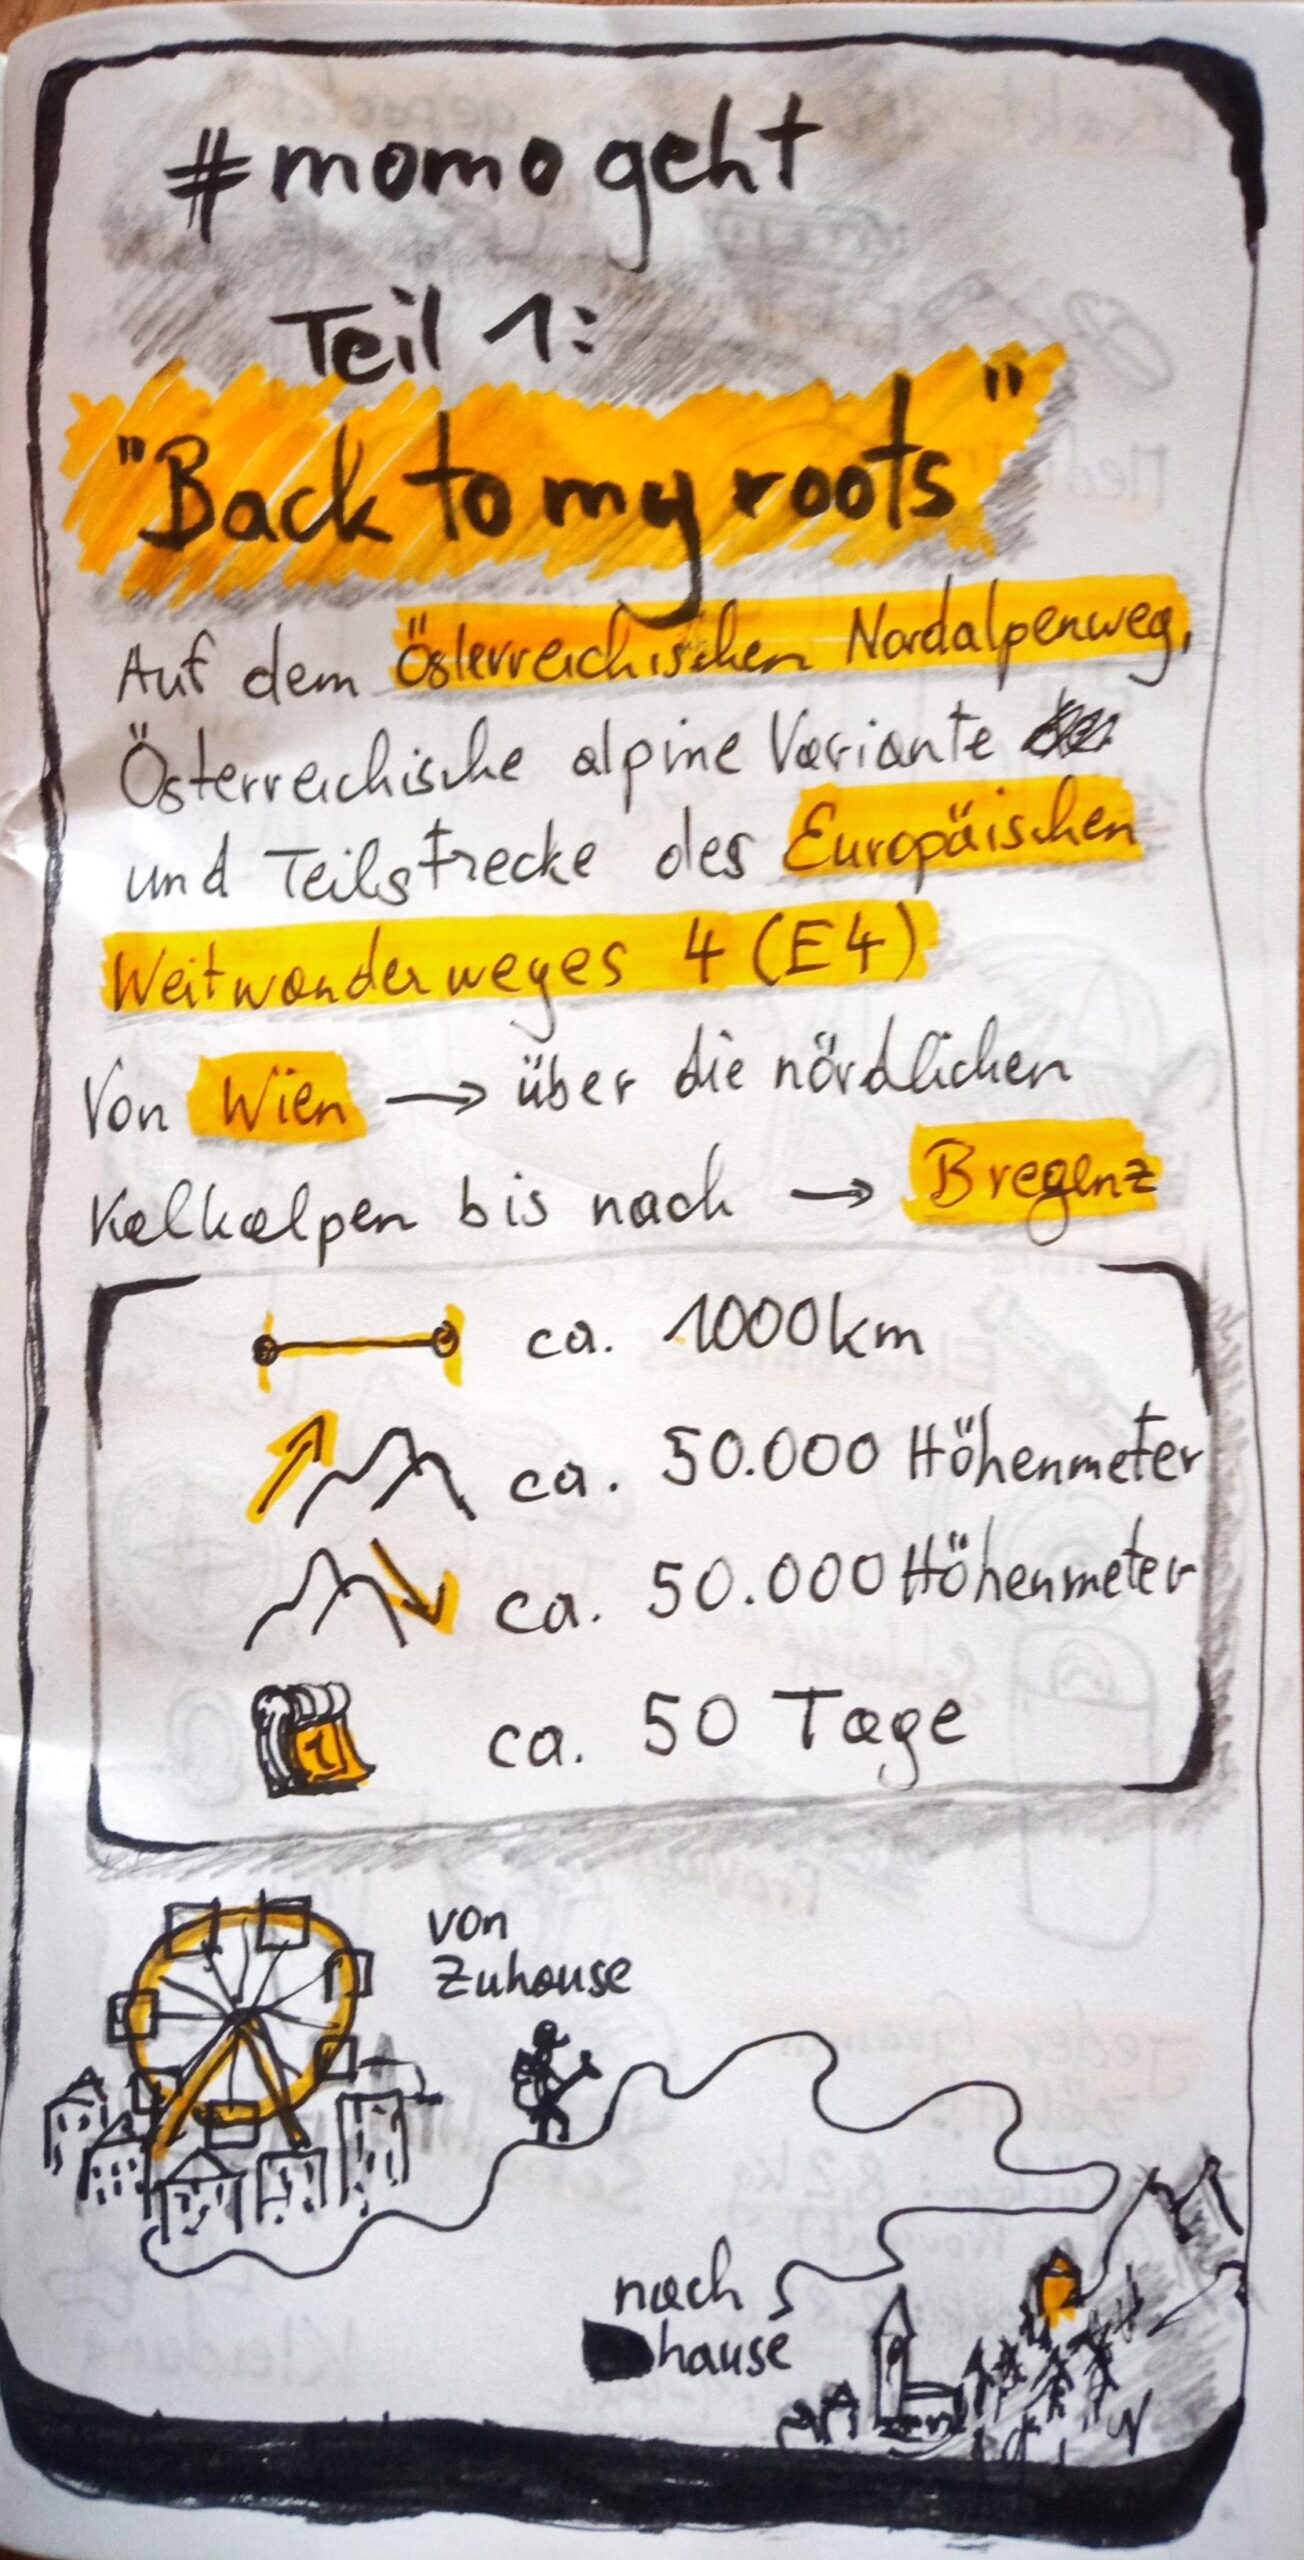 #momo geht
Teil 1:
"Back to my roots"
Auf dem Österreichischen Nordalpenweg,
Österreichische alpine Variante
und Teilstrecke des Europäischen
Weitwanderweges 4 (E4)
Von Wien → über die nördlichen
Kalkalpen bis nach → Bregenz
ca. 1000km
ca. 50.000 Höhenmeter
ca. 50.000 Höhenmeter
1 ca. 50 Tage
von
Zuhause
nach
hause